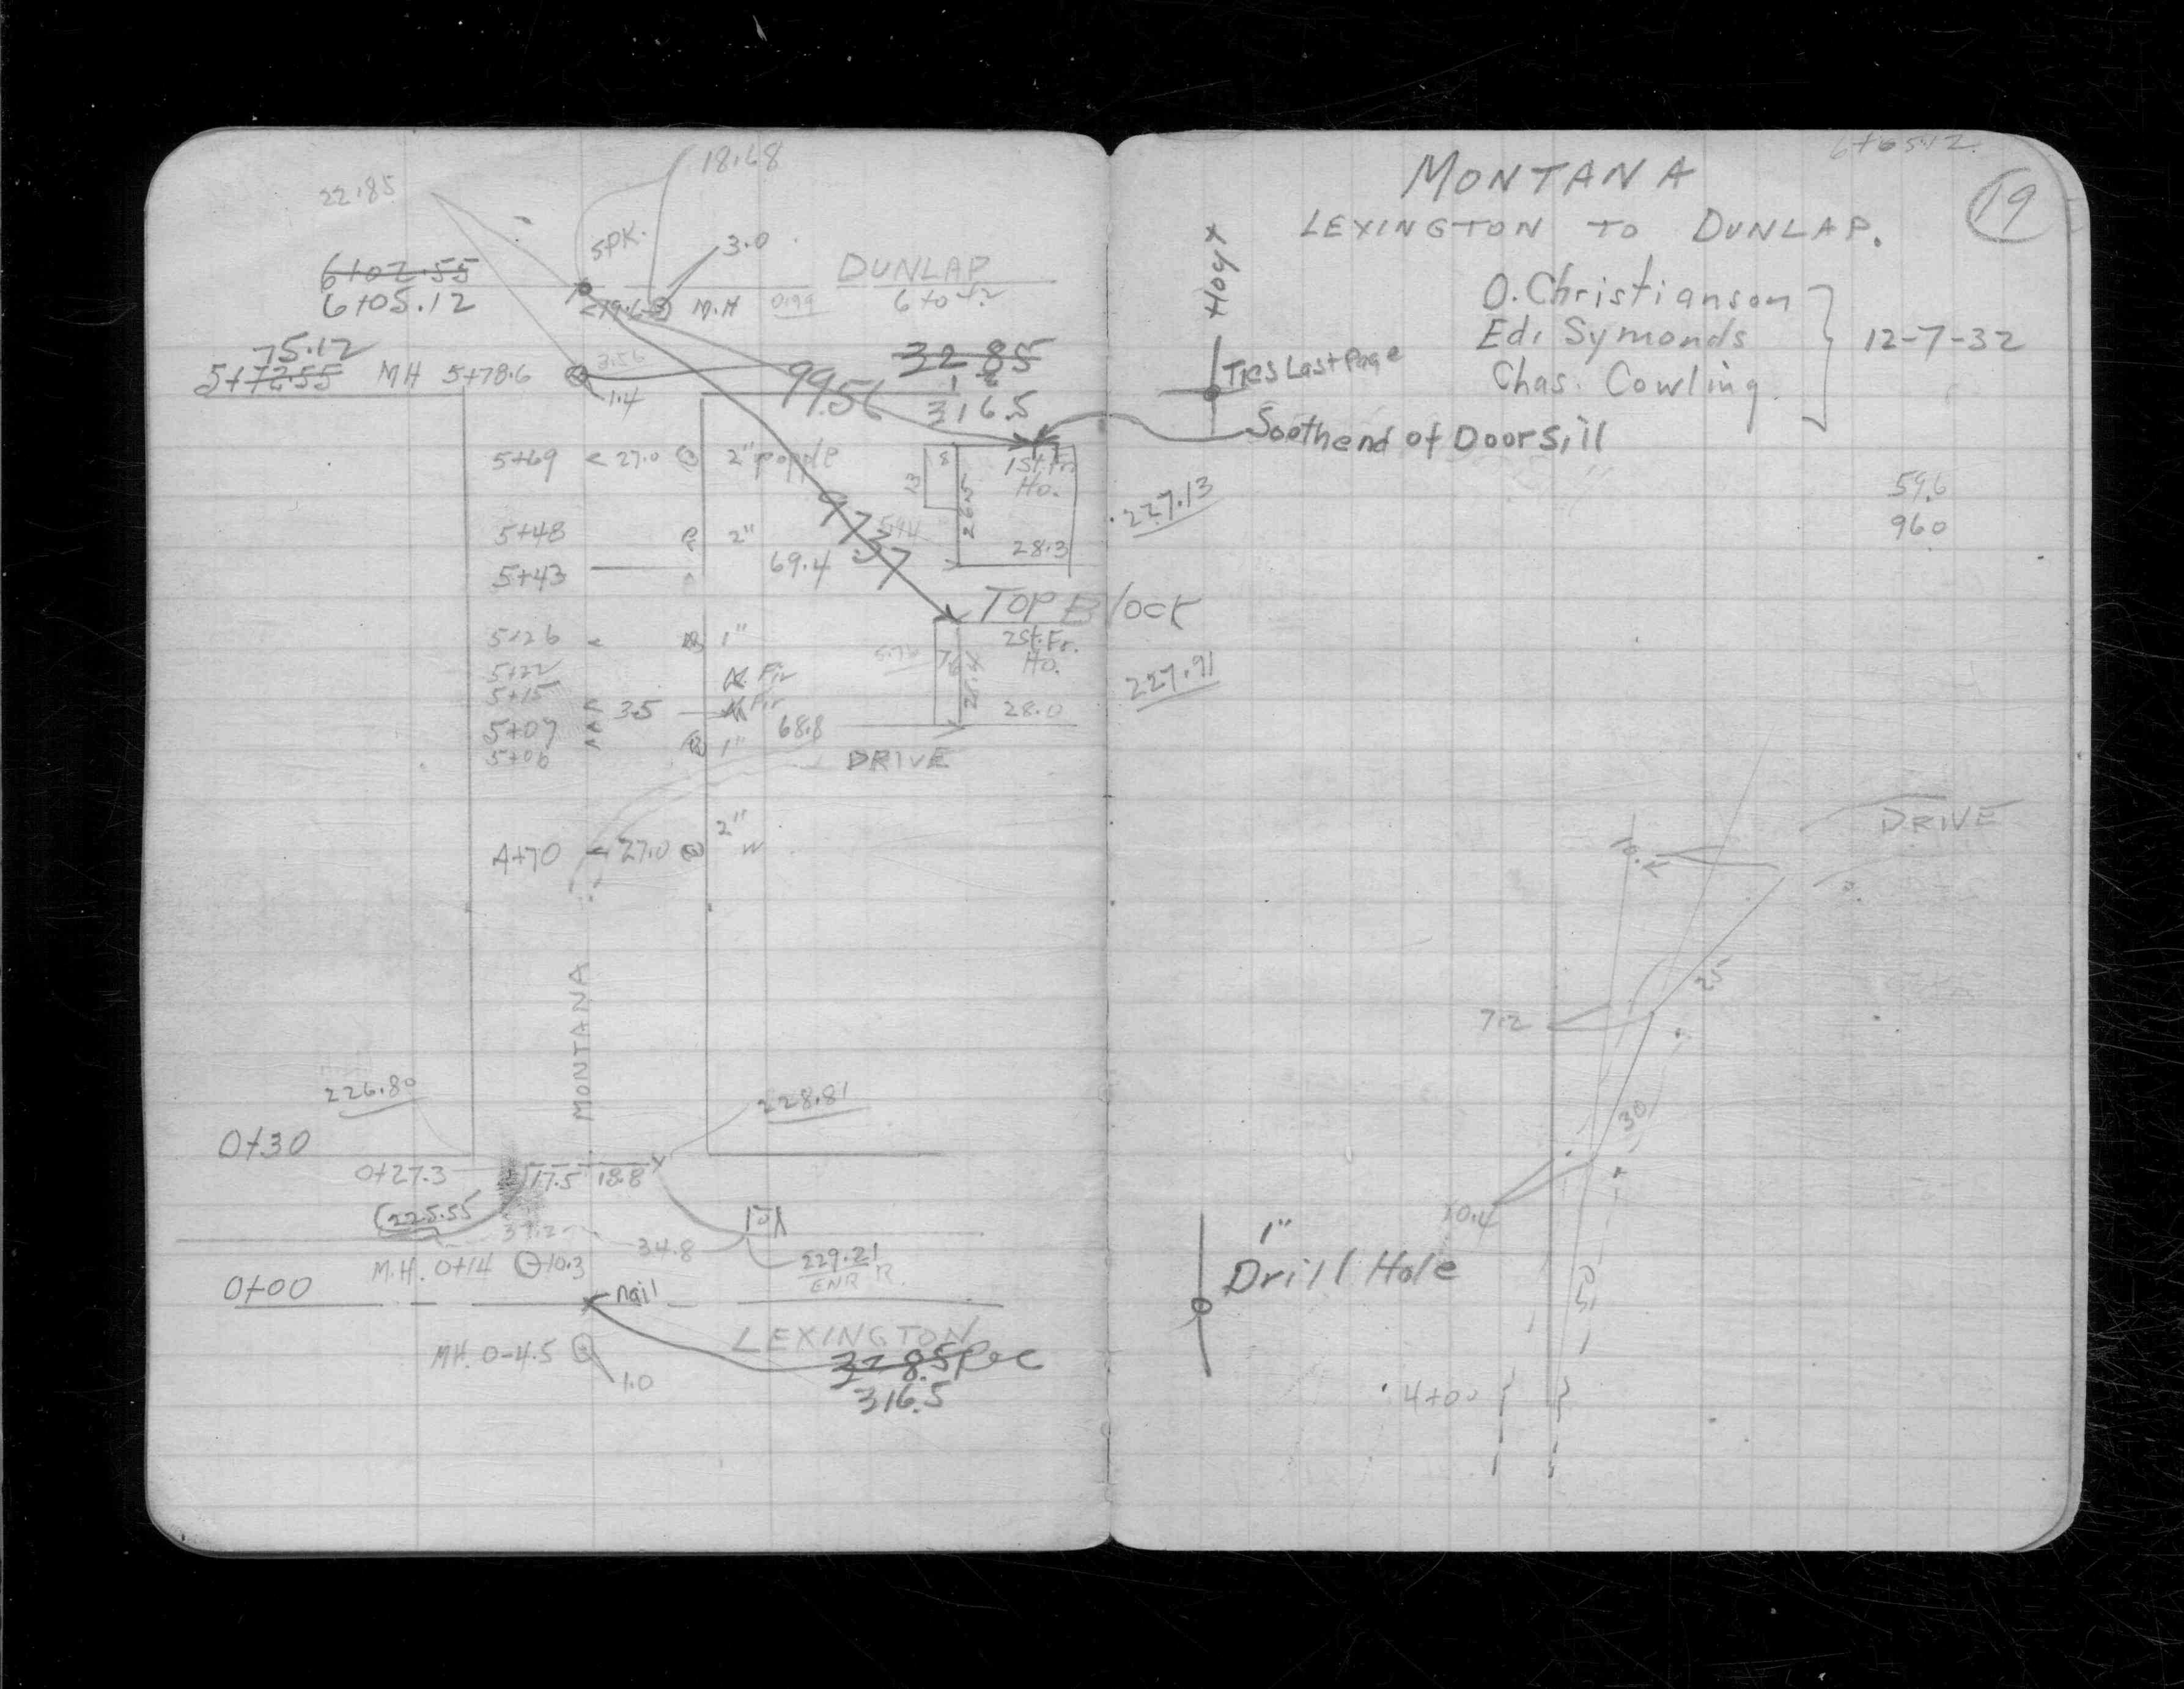 18.68
22.85
SPK.
3.0
DUNLAP
6+02.55
6+05.12
M.H
75.12
5+72.55 MH 5+78.6
3.56
1.4
99.56
316.5
5+69 27.0 2" popple
8
26.5
1 St. Fr.
Ho.
28.3
5+48 2"
5+43
69.4
97.37
TOP Block
5+26 1"
5+22 Fir
5+15 Fir
3.5
5+07 1"
5+06
68.8
2 St. Fr.
Ho.
28.0
DRIVE
4+70 27.0 2"
MONTANA
226.80
228.81
0+30
0+27.3 17.5 18.8
225.55
34.8
229.21
M.H. 0+14 10.3
0+00
nail
LEXINGTON
MH. 0-4.5
1.0
316.5
6+05.12
19
MONTANA
LEXINGTON TO DUNLAP.
Hoyt
O. Christianson
Ed. Symonds
Chas. Cowling
12-7-32
Ties Last Page
South end of Doorsill
227.13
59.6
960
227.91
DRIVE
25
7.2
30
10.4
1"
Drill Hole
4+00